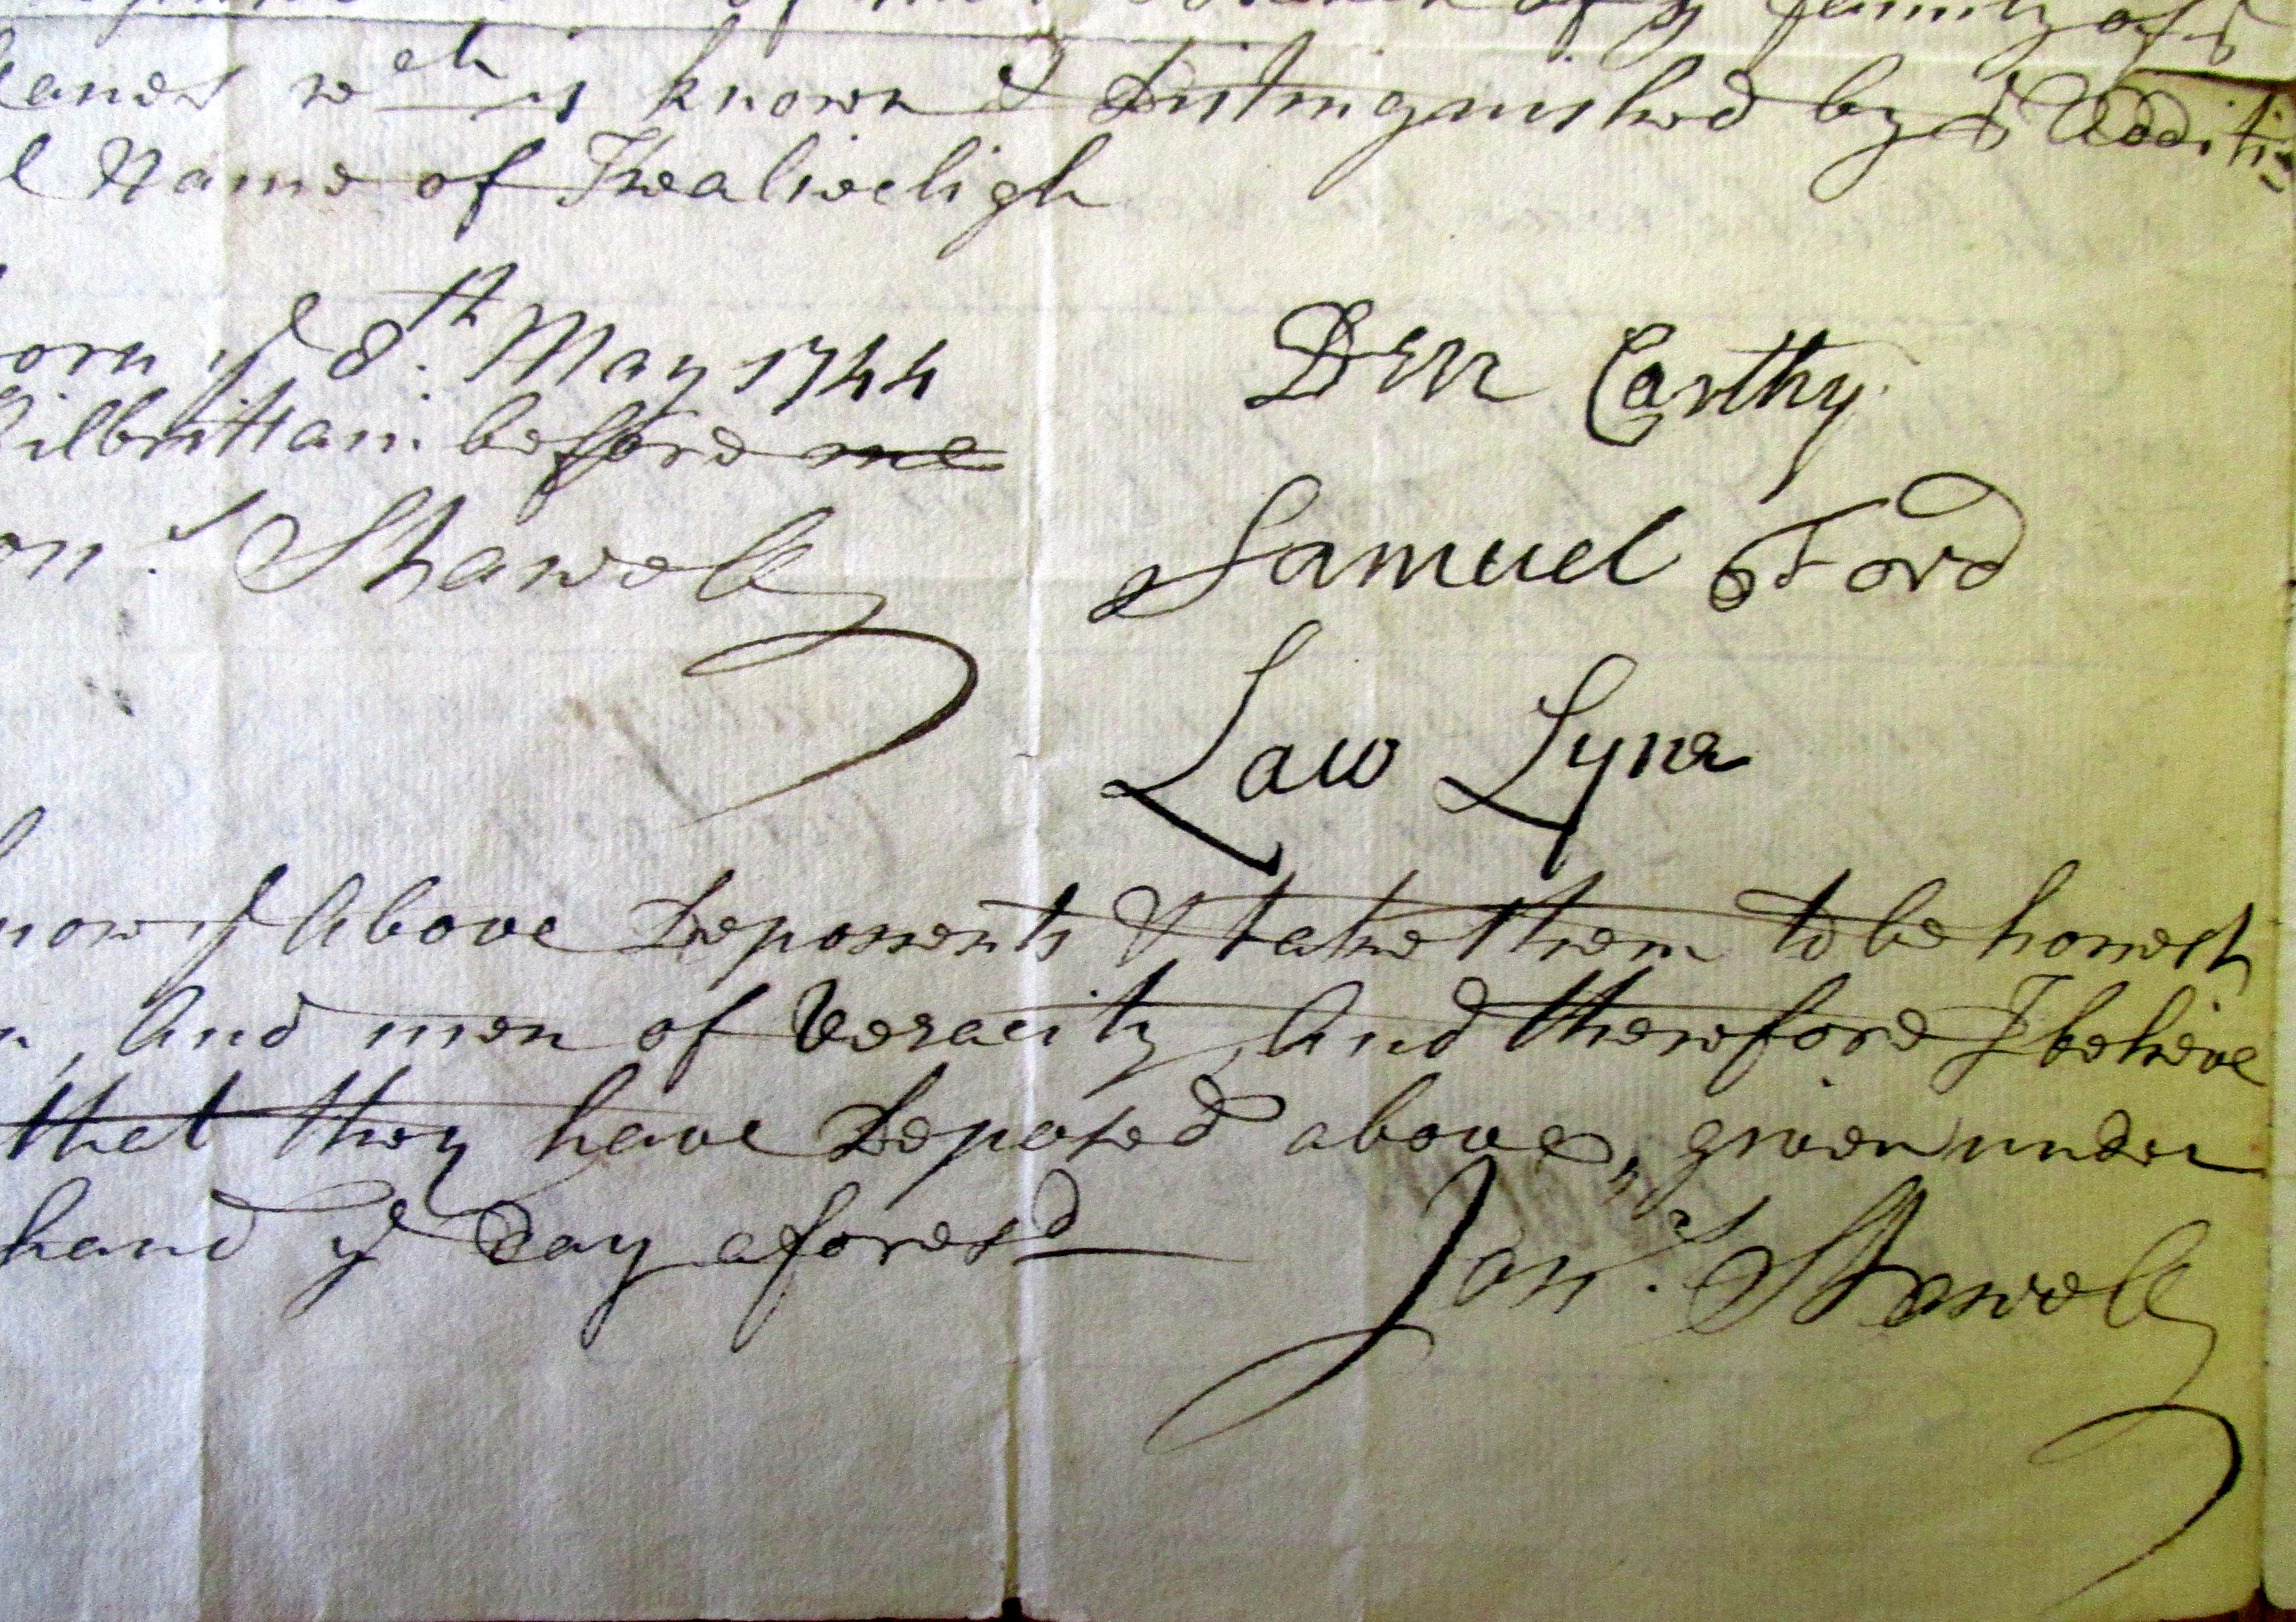 of y family of
lands wch is known & Distinguished by ye Addition
l Name of Thealiheligh
orn ye 8th. May 1744
Kilbrittain before me
on.s Stawell
Den Carthy
Samuel Ford
Law Lyne
now ye Above Deponents & take them to be honest
n, And men of Veracity, And therefore I believe
that they have Deposed above, given under
hand ye Day aforesd
Jon.s Stawell